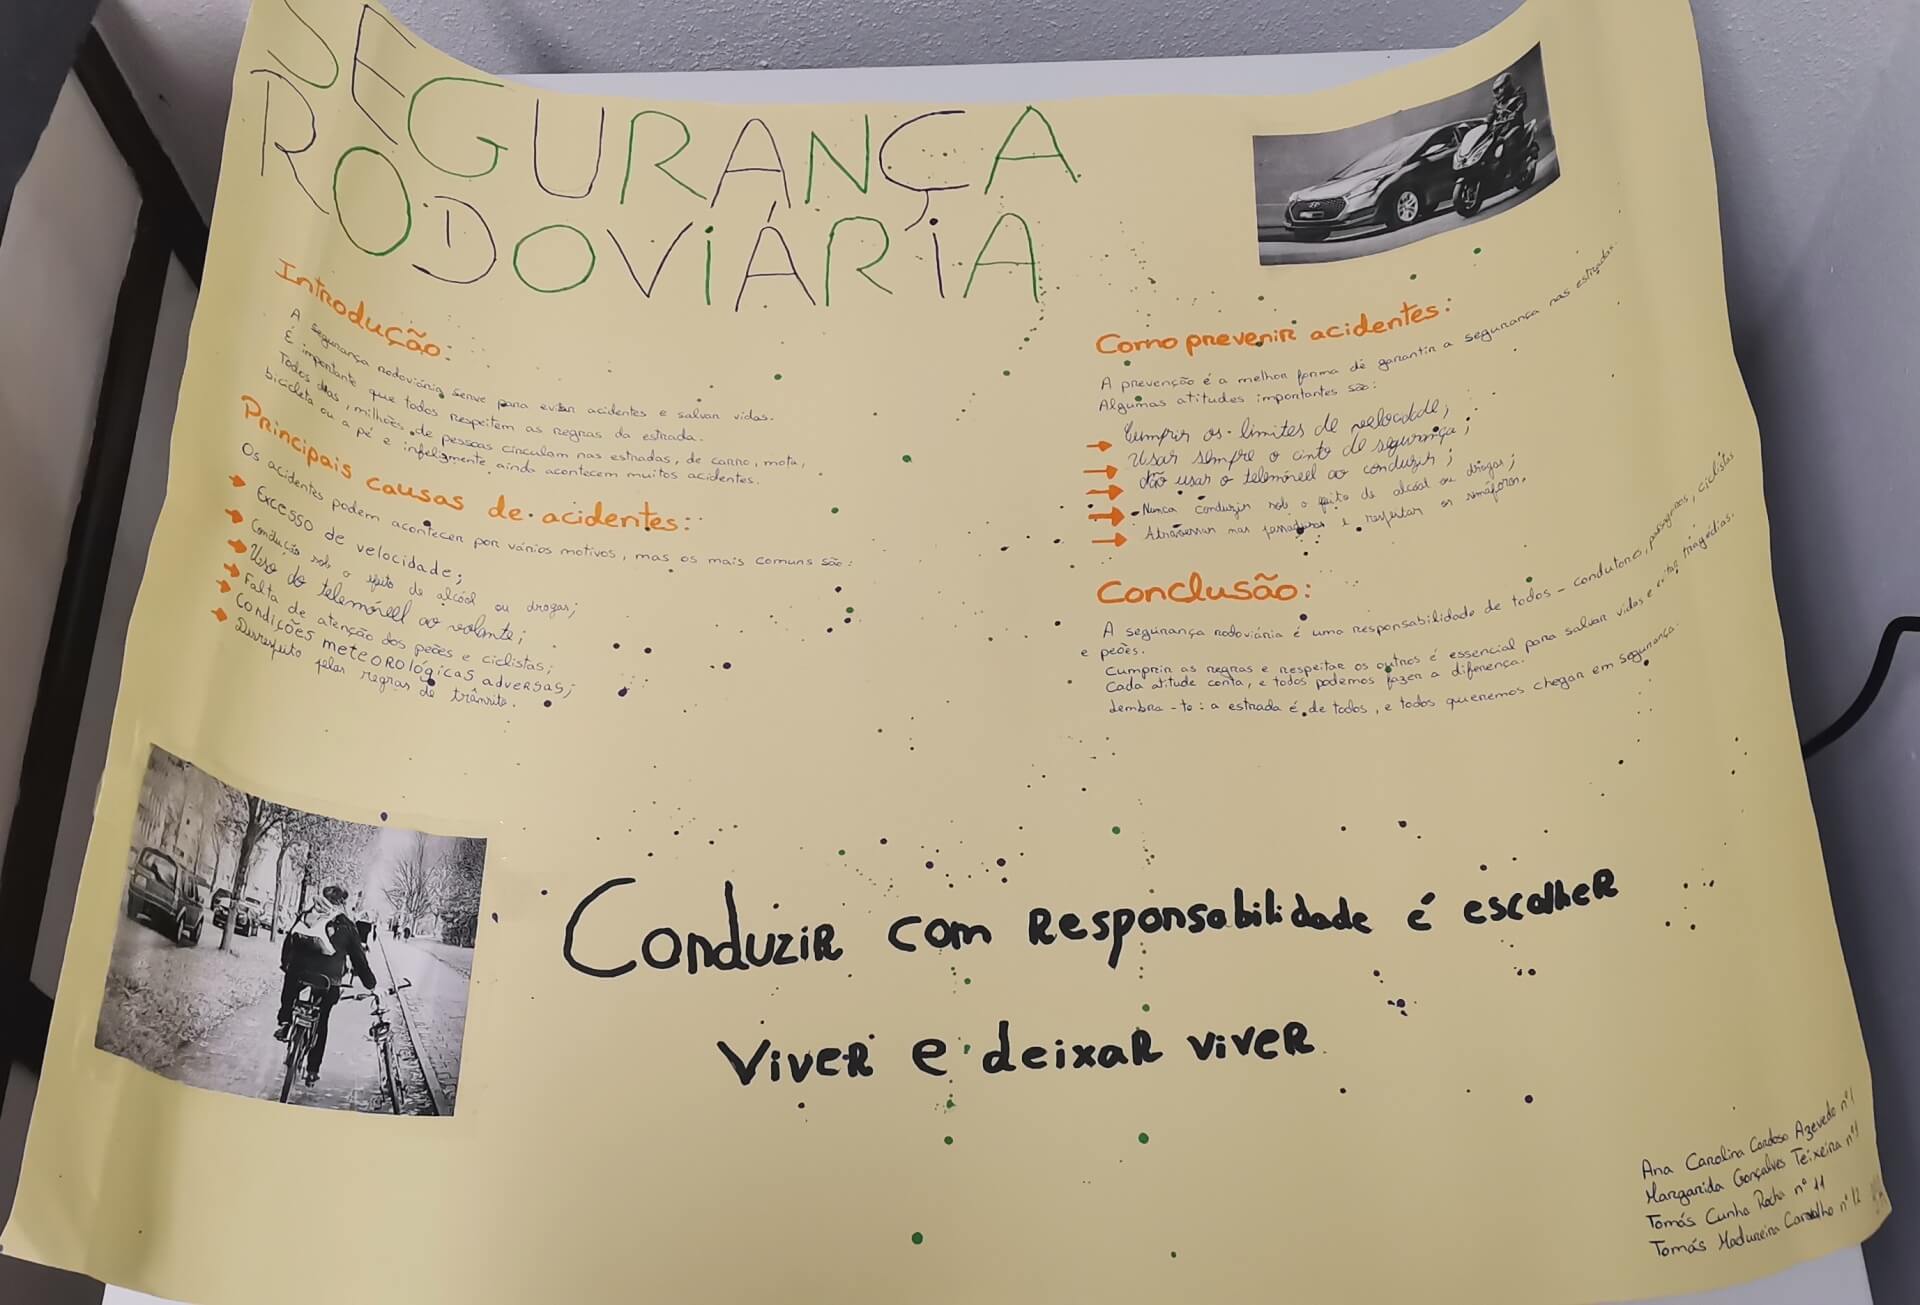 SEGURANÇA
RODOVIÁRIA
Introdução:
A segurança rodoviária serve para evitar acidentes e salvar vidas.
É importante que todos respeitem as regras da estrada.
Todos dias, milhões de pessoas circulam nas estradas, de carro, mota,
bicicleta ou a pé e infelizmente, ainda acontecem muitos acidentes.
Principais causas de acidentes:
Os acidentes podem acontecer por vários motivos, mas os mais comuns são:
Excesso de velocidade;
Condução sob o efeito de alcóol ou drogas;
Uso do telemóvel ao volante;
Falta de atenção dos peões e ciclistas;
Condições meteorológicas adversas;
Desrespeito pelas regras de trânsito.
Como prevenir acidentes:
A prevenção é a melhor forma de garantir a segurança nas estradas.
Algumas atitudes importantes são:
Cumprir os limites de velocidade;
Usar sempre o cinto de segurança;
Não usar o telemóvel ao conduzir;
Nunca conduzir sob o efeito de alcóol ou drogas;
Atravessar nas passadeiras e respeitar os semáforos.
Conclusão:
A segurança rodoviária é uma responsabilidade de todos - condutores, passageiros, ciclistas
e peões.
Cumprir as regras e respeitar os outros é essencial para salvar vidas e evitar tragédias.
Cada atitude conta, e todos podemos fazer a diferença.
Lembra-te: a estrada é de todos, e todos queremos chegar em segurança.
Conduzir com responsabilidade é escolher
viver e deixar viver
Ana Carolina Cardoso Azevedo nº1
Margarida Gonçalves Teixeira nº
Tomás Cunha Rocha nº 11
Tomás Madureira Carvalho nº 12